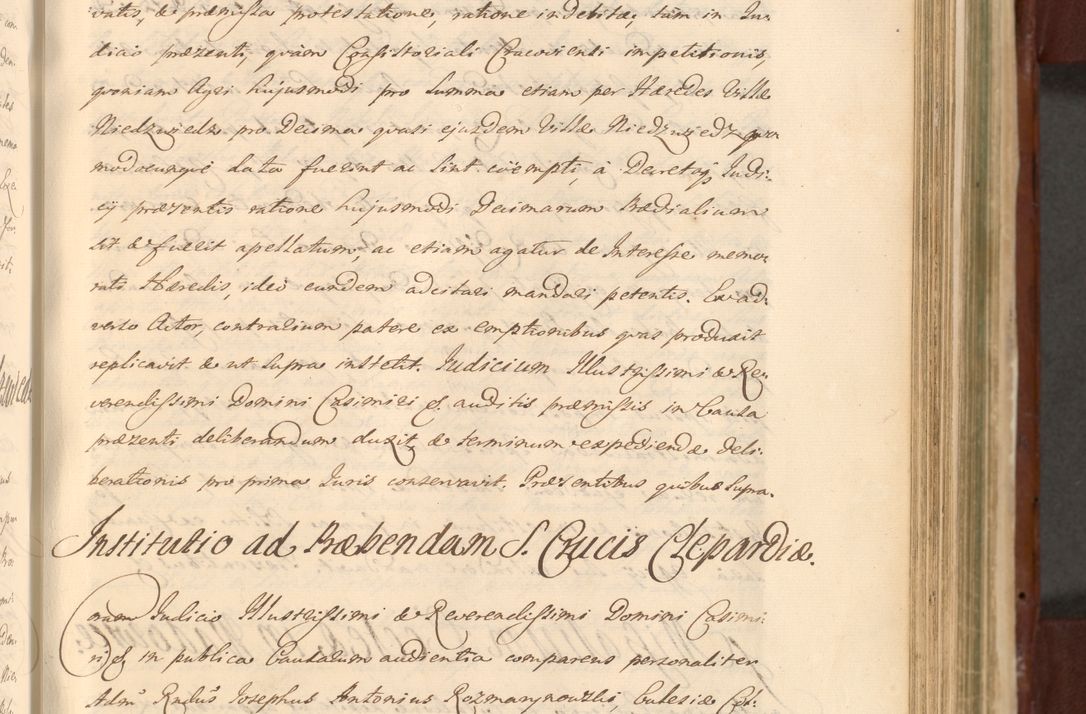 ivatis, & præmissa protestatione, ratione indebitæ, tàm in Iu-
dicio præzenti, quàm Consistoriali Cracoviensi impetitionis,
quoniam Agri hujusmodi pro summa etiam per Hæredes Villæ
Niedzwiedz pro Decima quasi ejusdem Villæ Niedzwiedz quo
modocunque data fuerint ac sint coëmpti, à Decretoq; Iudi-
cij præzentis ratione hujusmodi Decimarum Prædialium
sit & fuerit apellatum, ac etiam agatur de Interesse memo
rati Hæredis, ideò eundem adcitari mandari petentis. Ex ad-
verso Actor, contrarium patere ex emptionibus quas produxit
replicavit & ut supra institit. Iudicium Illustrissimi & Re-
verendissimi Domini Casimiri &. auditis præmissis in Causa
præzenti deliberandum duxit, & terminum expediendæ deli-
berationis pro prima Iuris conservavit. Præsentibus quibus supra.
Institutio ad Præbendam S. Crucis Clepardiæ.
Coram Iudicio Illustrissimi & Reverendissimi Domini Casimi-
ri &. in publica Causarum audientia comparens personaliter
Adm Rndus Iosephus Antonius Rozmarynowski, Ecclesiæ Col-